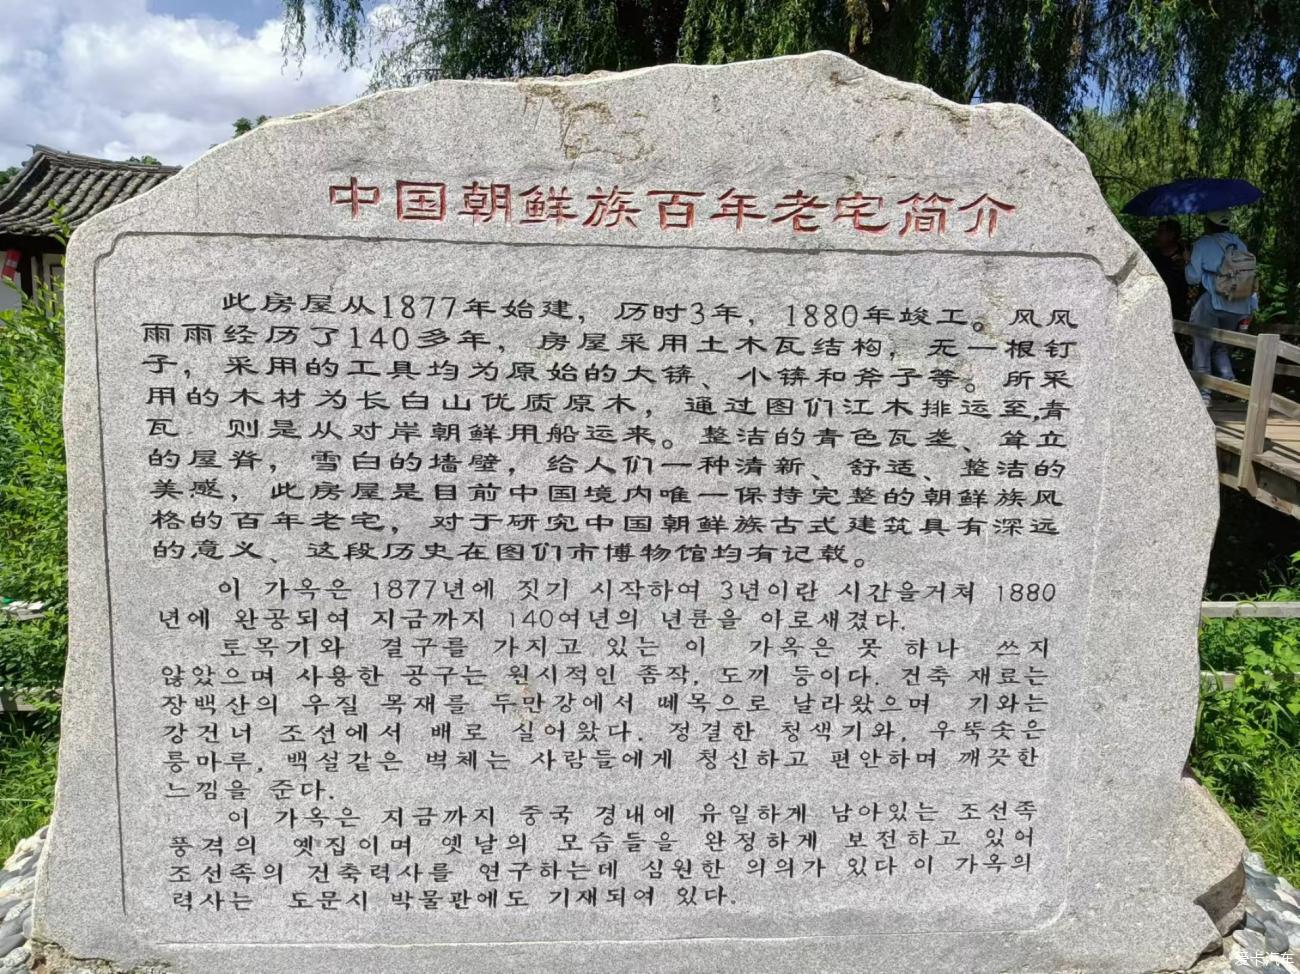 中国朝鲜族百年老宅简介
此房屋从1877年始建，历时3年，1880年竣工。风风
雨雨经历了140多年，房屋采用土木瓦结构，无一根钉
子，采用的工具均为原始的大锛、小锛和斧子等。所采
用的木材为长白山优质原木，通过图们江木排运至,青
瓦 则是从对岸朝鲜用船运来。整洁的青色瓦垄、耸立
的屋脊，雪白的墙壁，给人们一种清新、舒适、整洁的
美感，此房屋是目前中国境内唯一保持完整的朝鲜族风
格的百年老宅，对于研究中国朝鲜族古式建筑具有深远
的意义、这段历史在图们市博物馆均有记载。
이 가옥은 1877년에 짓기 시작하여 3년이란 시간을거쳐 1880
년에 완공되여 지금까지 140여년의 년륜을 아로새겼다.
토목기와 결구를 가지고 있는 이 가옥은 못 하나 쓰지
않았으며 사용한 공구는 원시적인 좀작, 도끼 등이다. 건축 재료는
장백산의 우질 목재를 두만강에서 떼목으로 날라왔으며 기와는
강건너 조선에서 배로 실어왔다. 정결한 청색기와, 우뚝솟은
룡마루, 백설같은 벽체는 사람들에게 청신하고 편안하며 깨끗한
느낌을 준다.
이 가옥은 지금까지 중국 경내에 유일하게 남아있는 조선족
풍격의 옛집이며 옛날의 모습들을 완정하게 보전하고 있어
조선족의 건축력사를 연구하는데 심원한 의의가 있다 이 가옥의
력사는 도문시 박물관에도 기재되여 있다.
爱卡汽车